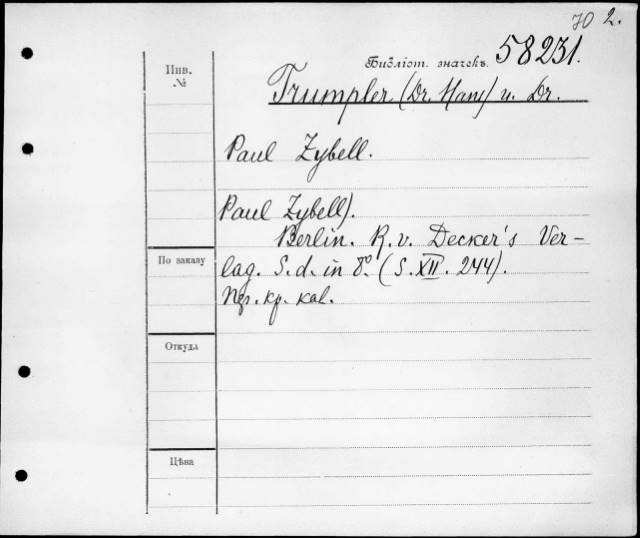 70 2.
Инв.
№
Библіот. значекъ. 58231.
Trumpler (Dr. Hans) u. Dr.
Paul Zybell.
Paul Zybell).
Berlin. R. v. Decker's Ver-
По заказу
lag. S. d. in 8º. (S. XII. 244).
кр. kal.
Откуда
Цѣна